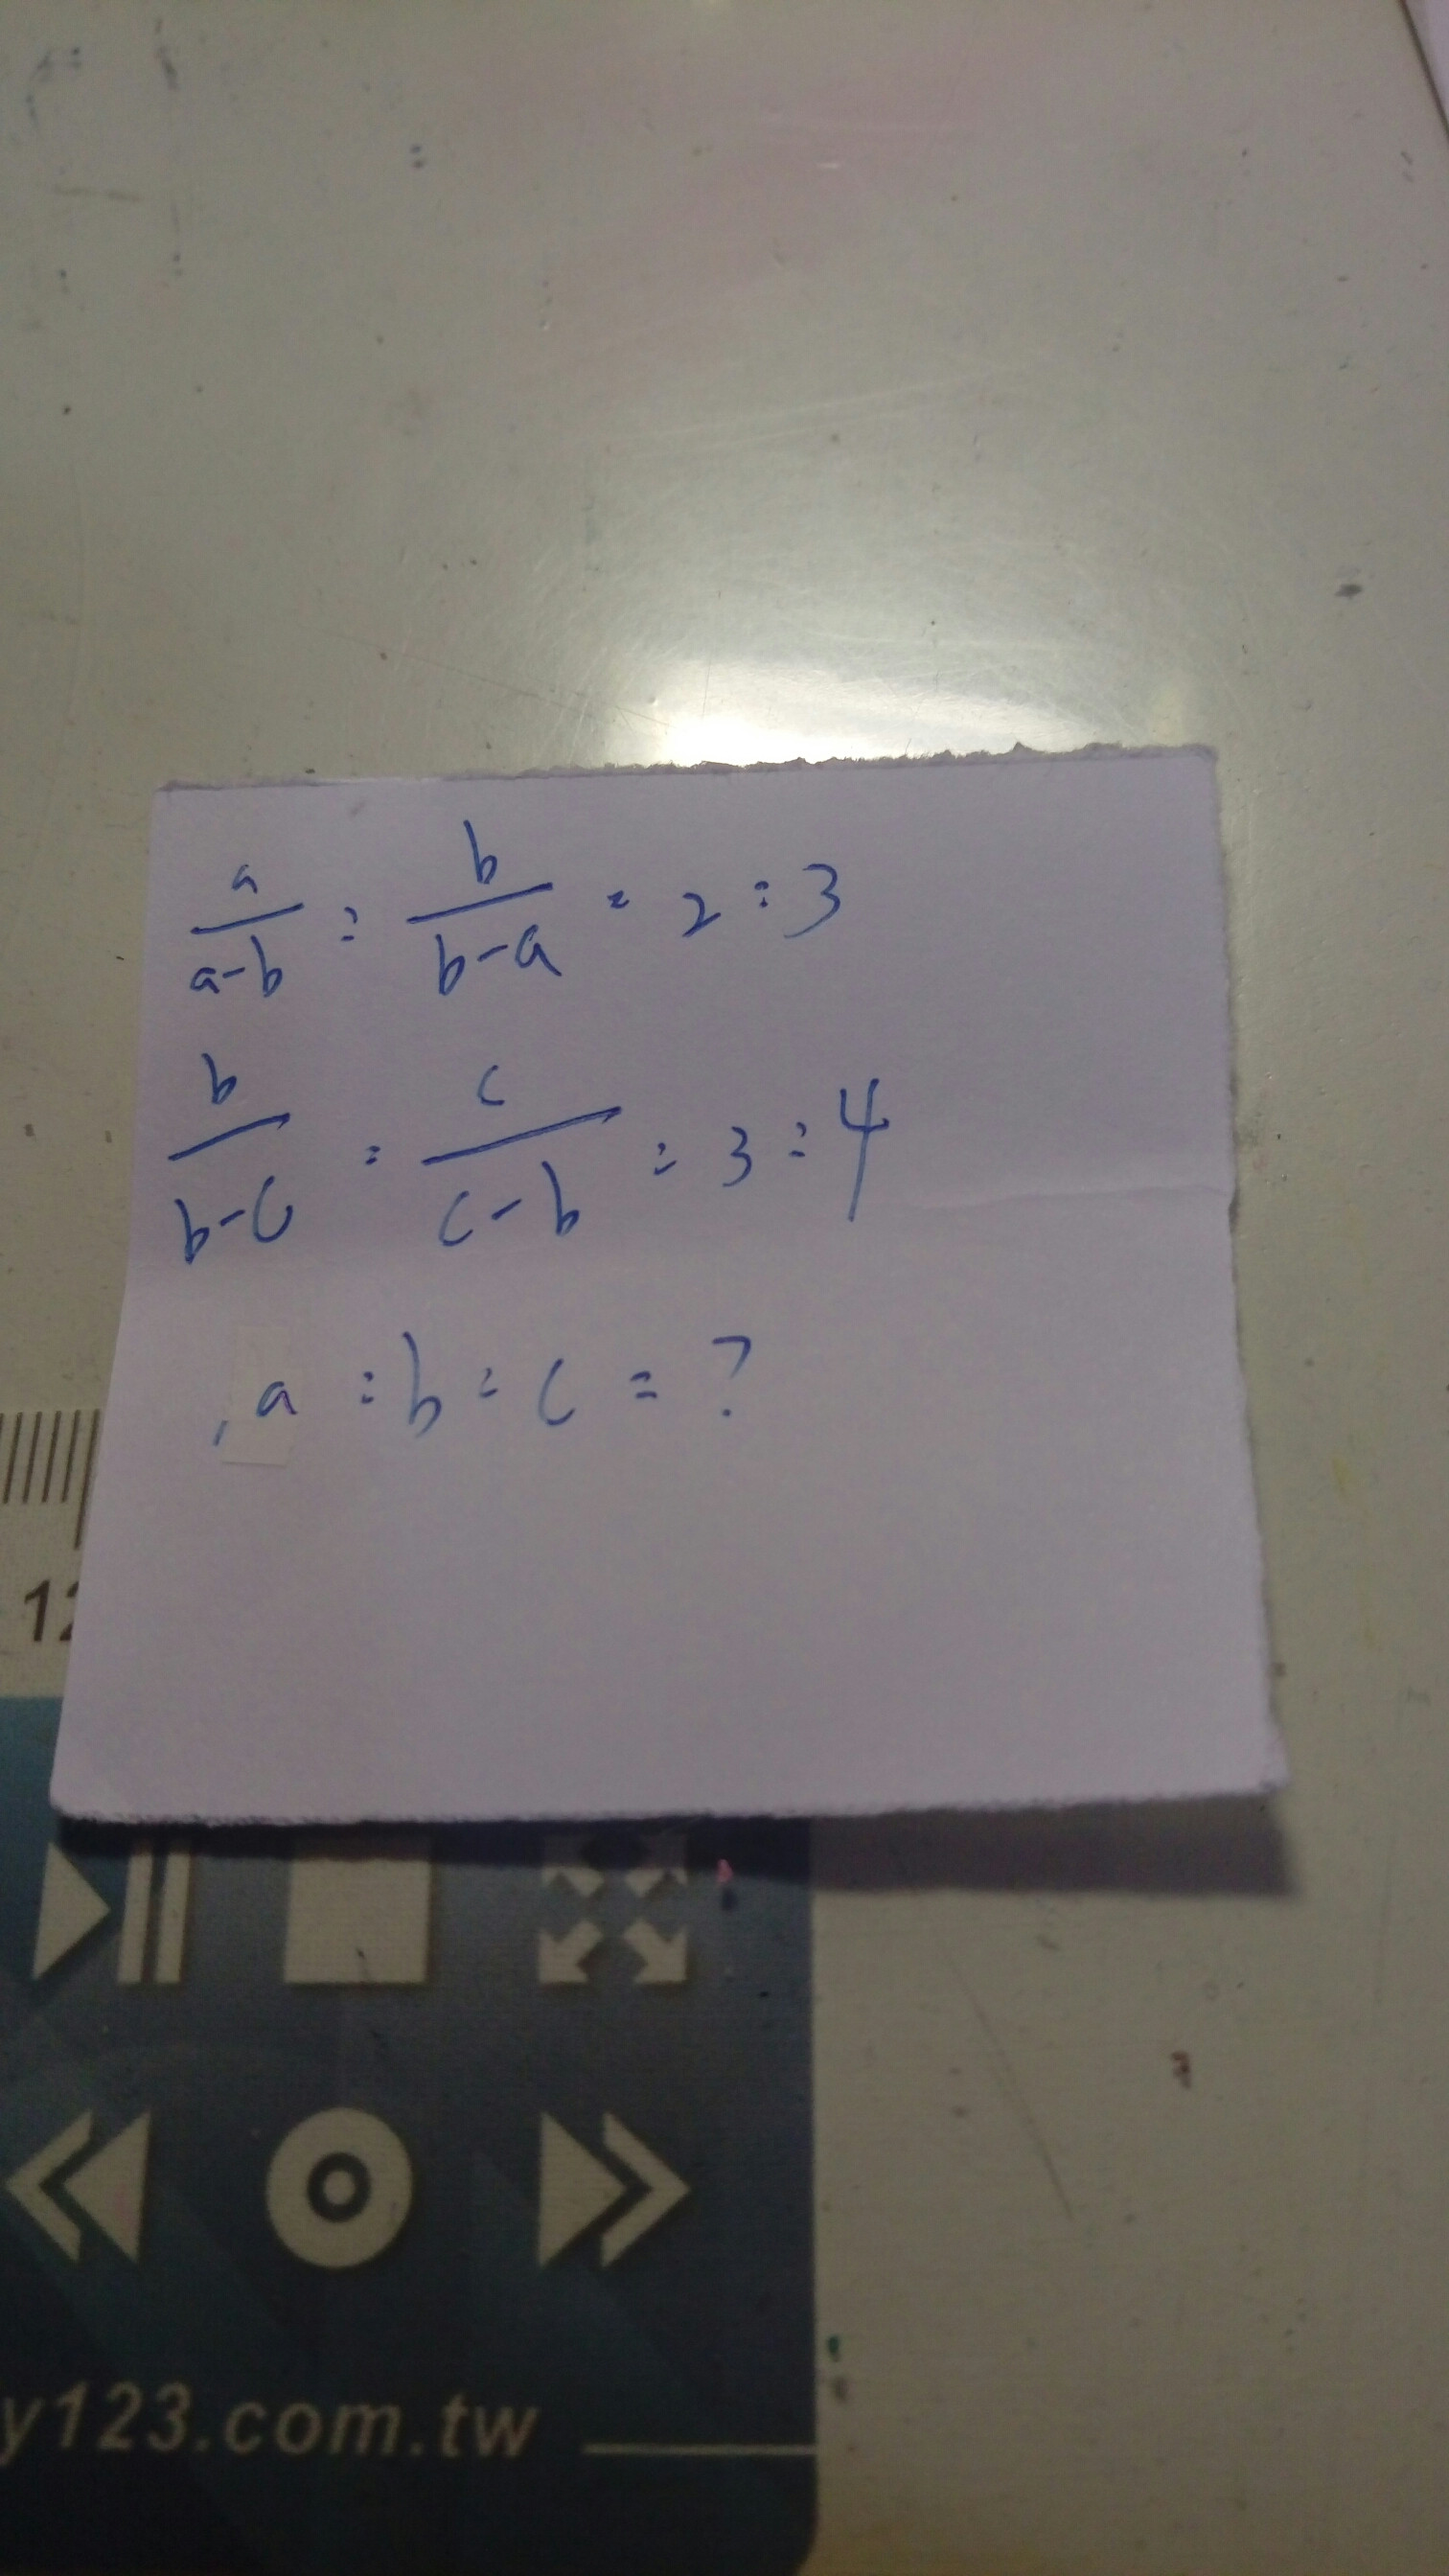 a/(a-b) : b/(b-a) = 2:3
b/(b-c) : c/(c-b) = 3:4
, a : b : c = ?
12
y123.com.tw